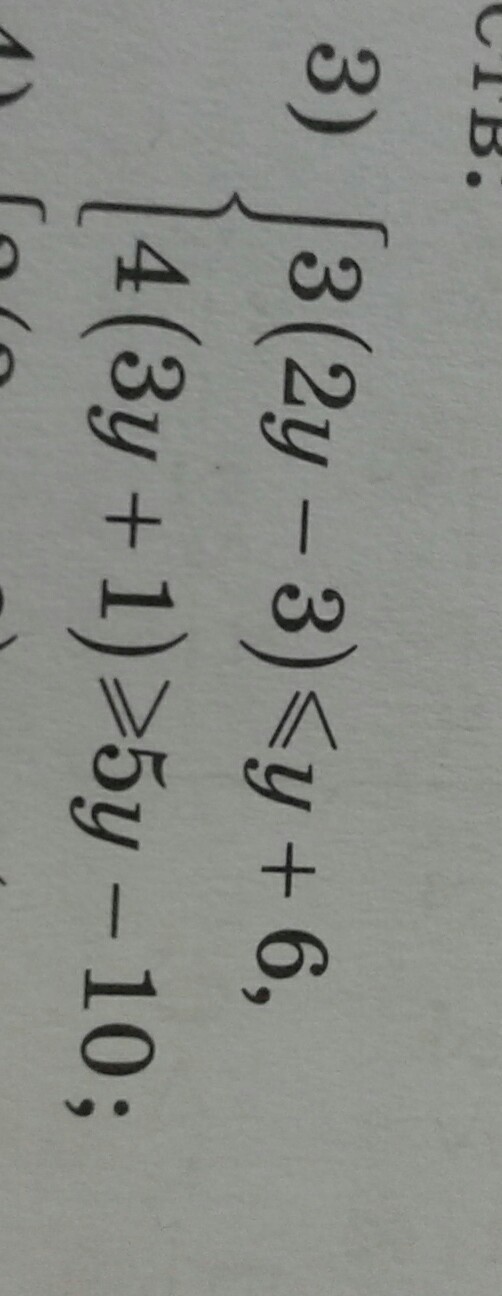 ств:
3) { 3(2y − 3) ⩽ y + 6,
4(3y + 1) ⩾ 5y − 10;
4)